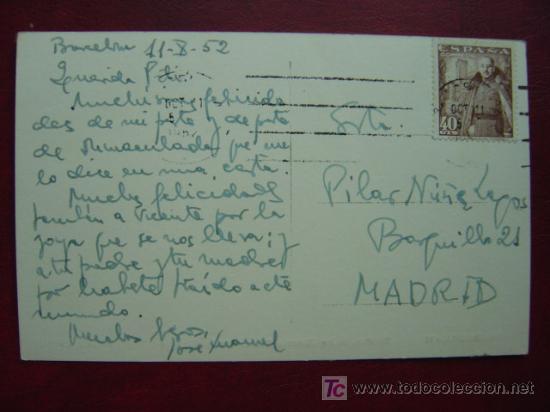 Barcelona 11-X-52
Querida Pili:
Muchísimas felicida
des de mi parte y de parte
de Inmaculada, que me
lo dice en una carta.
Muchas felicidades
también a Vicente por la
joya que se nos lleva; y
a tu padre y tu madre
por haberte traído a este
mundo.
Muchos besos,
José Manuel
ESPAÑA
40
CTS
OCT 11
Srta.
Pilar Núñez Lagos
Barquillo 21
MADRID
TC www.todocoleccion.net